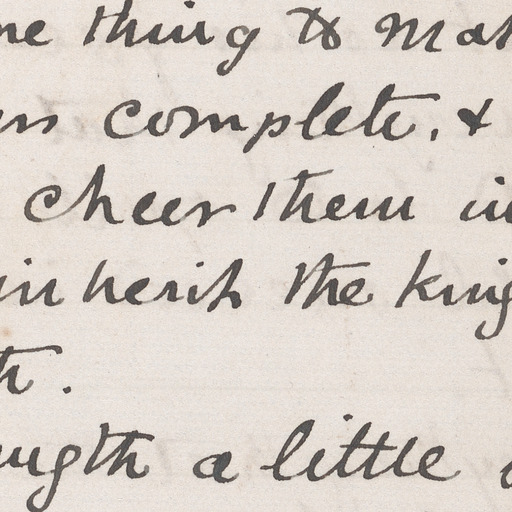 me thing to mak
complete, &
cheer them in
inherit the king
th.
ength a little